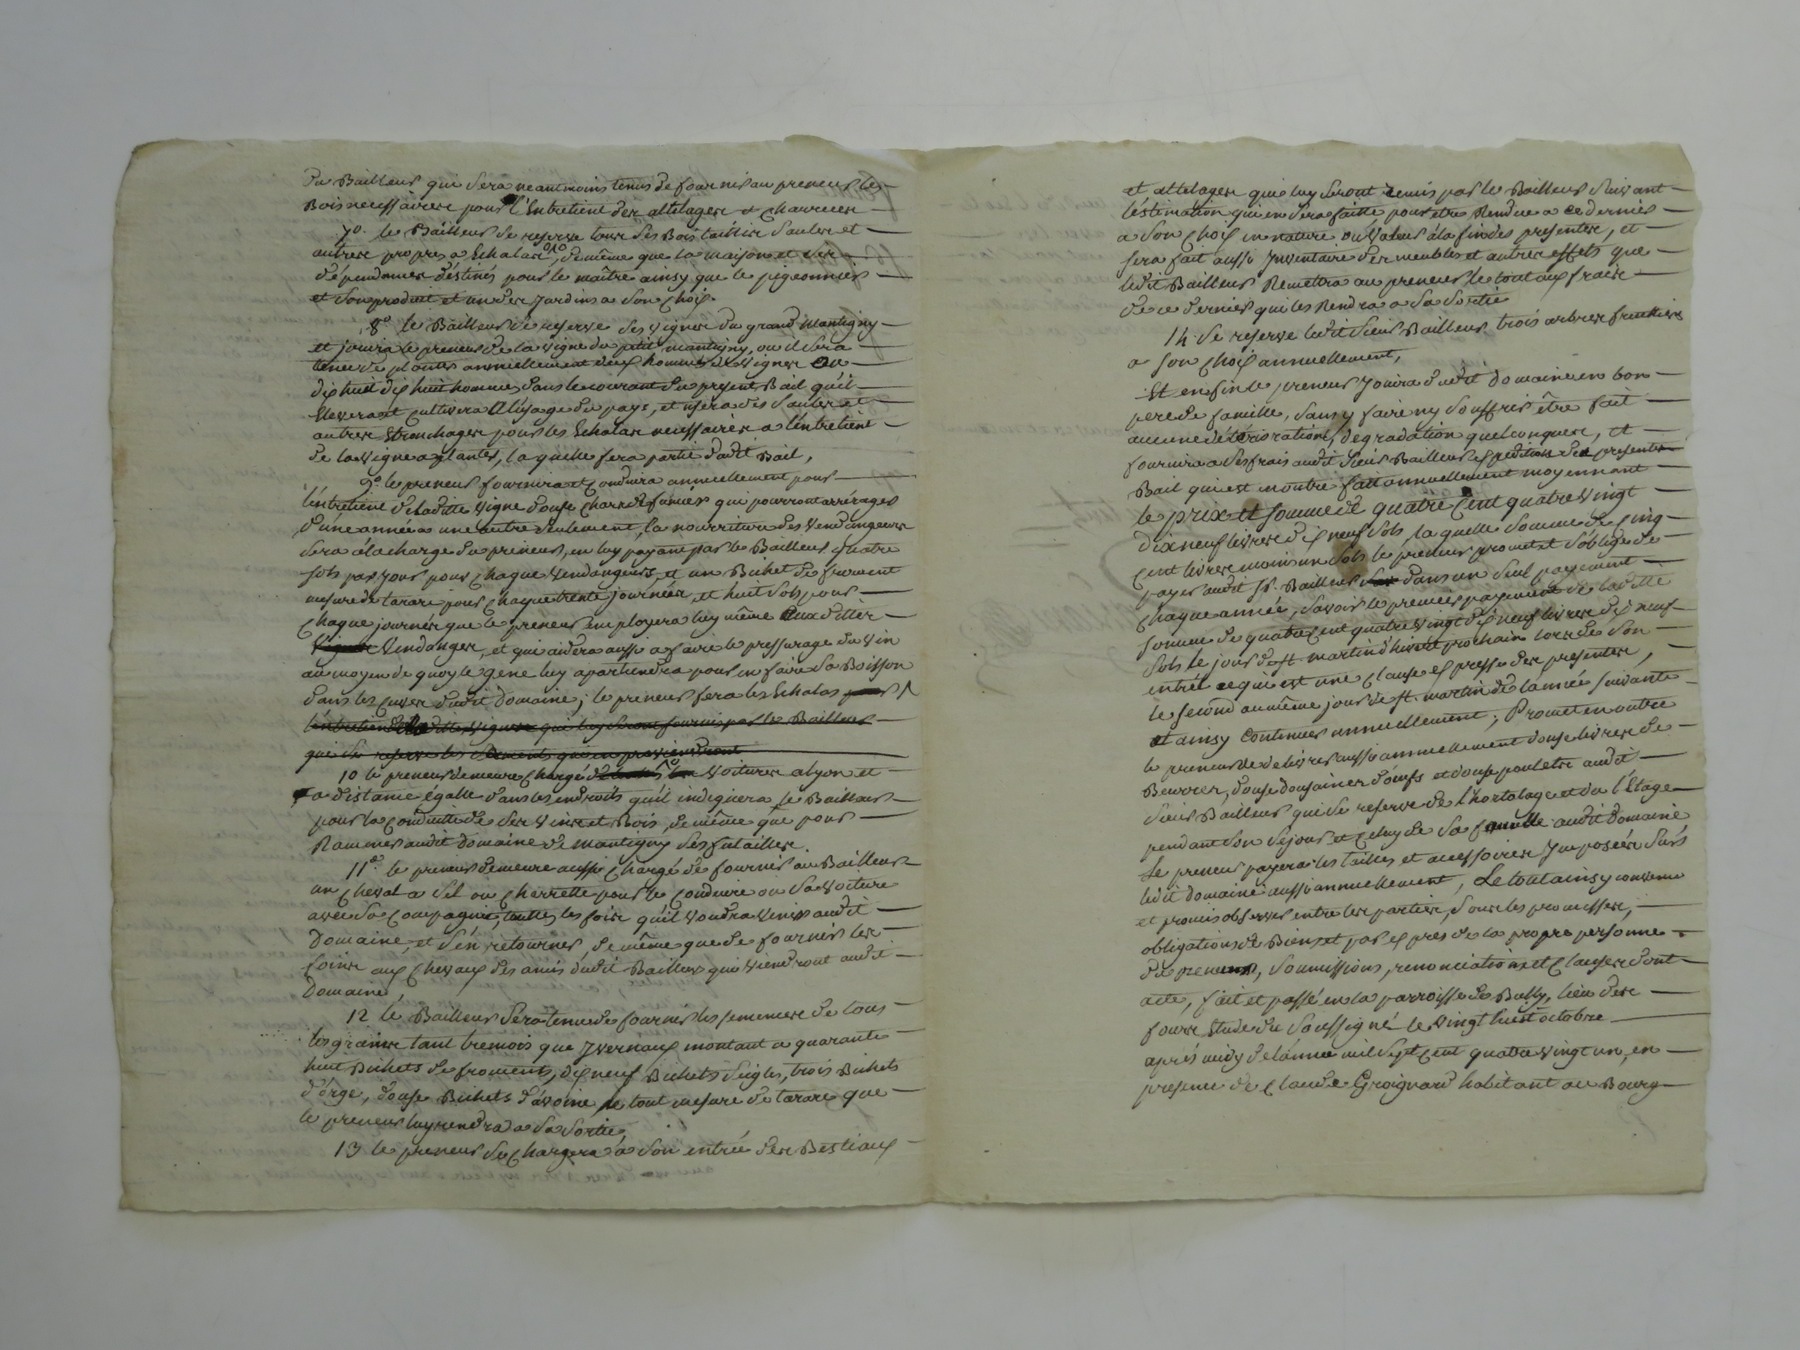 du Bailleur qui sera neantmoins tenus de fournir au preneur le
Bois necessaires pour l'Entretient des attelages et charrues
7o. le Bailleur se reserve tous ses Bois taillis saules et
autres propres a Echalas, de même que la maison et ses
dépendances déstinés pour le maître ainsy que le pigeonnier
et son produit et un des Jardins a son choix.
8o le Bailleur se reserve ses vignes du grand Mantigny
et jouira le preneur de la vigne du petit mantigny, ou il sera
tenu de planter annuellement deux hommes de vignes ou
dix huit hommes dans le courant du present Bail qu'il
Elevera et cultivera a l'usage du pays, et usera des saules et
autres Etronchages pour les Echalas necessaires a l'entretient
de la vigne a planter, la quelle fera partie dudit Bail,
9o le preneur fournira et conduira annuellement pour
l'entretient de laditte vigne douse chars de fumier qui pourront arrérager
d'une année a une autre seulement, la nourriture des Vendangeurs
sera a la charge du preneur, en luy payant par le Bailleur quatre
sols par jour pour chaque Vendangeurs, et un Bichet de froment
mesure de tarare pour chaque trente journées, et huit sols pour
chaque journées que le preneur employera luy même aux dittes
vignes Vendanges, et qui aidera aussi a faire le pressurage du vin
au moyen de quoy le gene luy apartiendra pour en faire sa Boisson
dans les cuves dudit domaine; le preneur fera les Echalas pour
l'entretient de laditte vignes qui luy seront fournis par le Bailleur
qui se reserve les sarments qui en proviendront
10 le preneur demeure chargé de voitures a lyon et
a distance égalle dans les endroits qu'il indiquera le Bailleur
pour la conduitte de ses vins et Bois, de même que pour
Ramener audit domaine de Mantigny ses futailles.
11o le preneur demeure aussi chargé de fournir au Bailleur
un cheval a sel ou charrette pour le conduire ou sa voiture
avec sa compagnie, toutes les fois qu'il voudra venir audit
Domaine, et s'en retourner, de même que de fournir les
foins aux chevaux des amis dudit Bailleur qui viendront audit
Domaine
12 le Bailleur sera tenu de fournir les semences de tous
les grains tant tremois que Yvernaux montant a quarante
huit Bichets de froments, dix neuf Bichets seigles, trois Bichets
d'orge, douse Bichets d'avoine le tout mesure de tarare que
le preneur luy rendra a sa sortie
13 le preneur se chargera a son entrée des Bestiaux
et attelages qui luy seront remis par le Bailleur suivant
l'estimation qui en sera faitte, pour etre Rendue a ce dernier
a son choix en nature ou valeur a la fin des presentes, et
sera fait aussi Inventaire des meubles et autres effets que
ledit Bailleur Remettra au preneur le tout aux frais
de ce dernier qui les Rendra a sa sortie
14. Se reserve ledit sieur Bailleur trois arbres fruitiers
a son choix annuellement,
Et en fin le preneur Jouira dudit domaine en bon
pere de famille, sans y faire ny souffrir être fait
aucune détériorations, degradation quelconques, et
fournira a ses frais audit sieur Bailleur expedition du present
Bail qui est en outre fait annuellement moyennant
le prix et somme de quatre cent quatre vingt
dix neuf livres dix neuf sols, la quelle somme de cinq
cent livres moins un sols le preneur promet et s'oblige de
payer audit Sr. Bailleur dans un seul payement
chaque année, savoir le premier payement de laditte
somme de quatre cent quatre vingt dix neuf livres dix neuf
sols le jour de st. martin d'hivert prochain lors de son
entrée ce qui est une clause expresse des presentes,
le second au même jour de st. martin de l'année suivante
et ainsy continuer annuellement; Promet en outre
le preneur de delivrer aussi annuellement douse livres de
Beurre, douse dousaines d'oeufs et douse poulets audit
sieur Bailleur qui se reserve de l'hortolage et de l'Etage
pendant son sejour et celuy de sa famille audit domaine
Le preneur payera les tailles et accessoires Imposées sur
ledit domaine aussi annuellement, Le tout ainsy convenu
et promis observer entre les parties, sous les promesses,
obligations de Biens et par exprès de la propre personne
du preneur, soumissions, renonciations et clauses dont
acte, fait et passé en la parroisse de Bully, lieu des
fours Etude du soussigné le vingt huit octobre
après midy de l'année mil sept cent quatre vingt un, en
presence de Claude Groignard habitant au Bourg